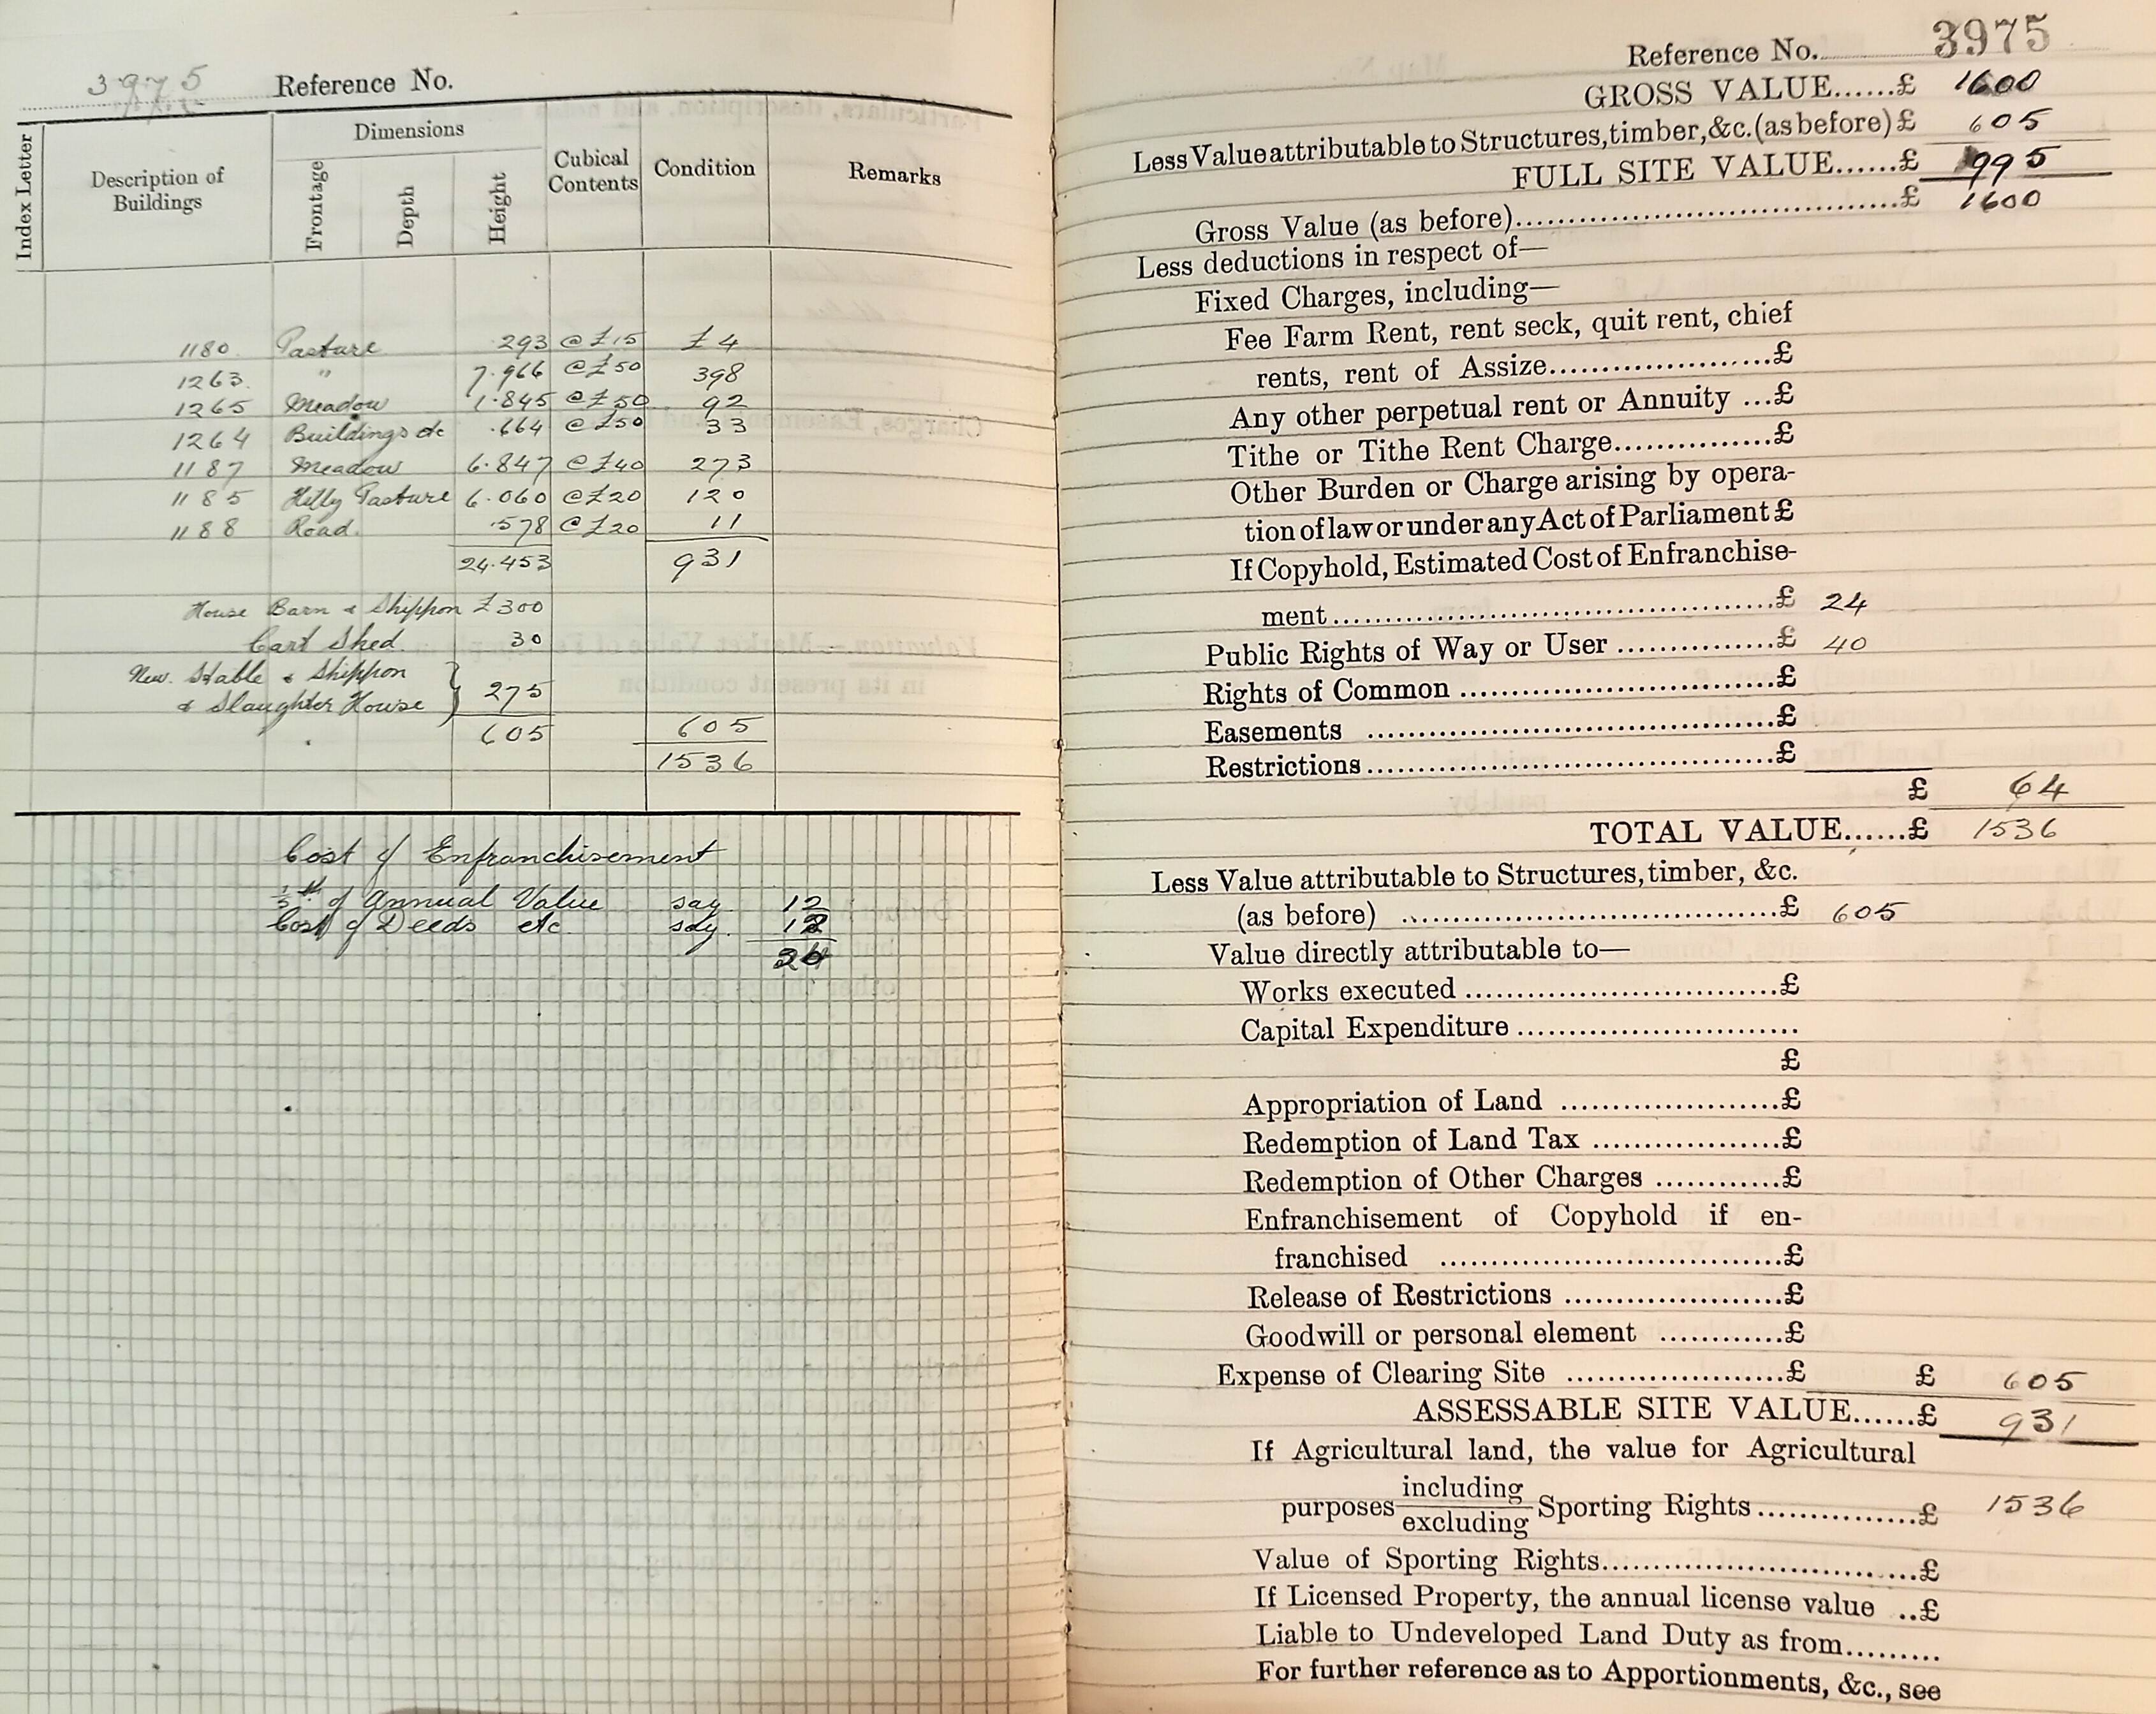 3975 Reference No.
Index Letter
Description of Buildings
Dimensions
Frontage
Depth
Height
Cubical Contents
Condition
Remarks
1180. Pasture .293 @ £15 £4
1263. " 7.966 @ £50 398
1265 Meadow 1.845 @ £50 92
1264 Buildings etc .664 @ £50 33
1187 Meadow 6.847 @ £40 273
1185 Hilly Pasture 6.060 @ £20 120
1188 Road. .578 @ £20 11
24.453 931
House Barn & Shippon £300
Cart Shed 30
New. Stable & Shippon
& Slaughter House } 275
605 605
1536
Cost of Enfranchisement
th of Annual Value say 12
Cost of Deeds etc. say. 12
24
Reference No. 3975
GROSS VALUE......£ 1600
Less Value attributable to Structures, timber, &c. (as before) £ 605
FULL SITE VALUE......£ 995
Gross Value (as before)......£ 1600
Less deductions in respect of—
Fixed Charges, including—
Fee Farm Rent, rent seck, quit rent, chief
rents, rent of Assize......£
Any other perpetual rent or Annuity ...£
Tithe or Tithe Rent Charge......£
Other Burden or Charge arising by opera-
tion of law or under any Act of Parliament £
If Copyhold, Estimated Cost of Enfranchise-
ment......£ 24
Public Rights of Way or User ......£ 40
Rights of Common ......£
Easements ......£
Restrictions......£
£ 64
TOTAL VALUE......£ 1536
Less Value attributable to Structures, timber, &c.
(as before) ......£ 605
Value directly attributable to—
Works executed ......£
Capital Expenditure ......
£
Appropriation of Land ......£
Redemption of Land Tax ......£
Redemption of Other Charges ......£
Enfranchisement of Copyhold if en-
franchised ......£
Release of Restrictions ......£
Goodwill or personal element ......£
Expense of Clearing Site ......£ £ 605
ASSESSABLE SITE VALUE......£ 931
If Agricultural land, the value for Agricultural
purposes including/excluding Sporting Rights ......£ 1536
Value of Sporting Rights......£
If Licensed Property, the annual license value ..£
Liable to Undeveloped Land Duty as from.........
For further reference as to Apportionments, &c., see